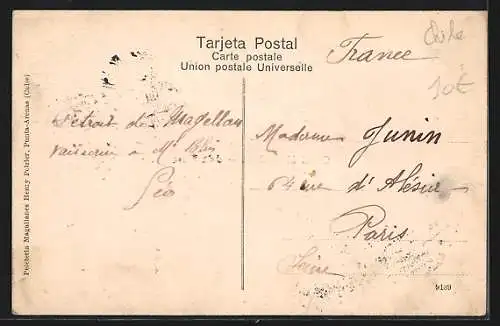 Tarjeta Postal
Carte postale
Union postale Universelle
France
Chile
10€
Détroit de Magellan
à Mr
Léo
Madame Junin
64 rue d'Alésia
Paris
Seine
Pochetta Magallanes Henry Poirier, Punta-Arenas (Chile)
9189